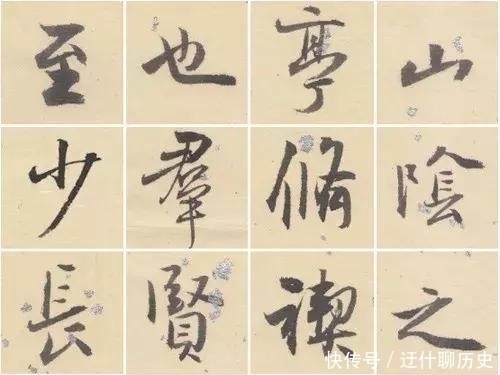 山陰之
亭脩禊
也羣賢
至少長
快传号 / 迂什聊历史